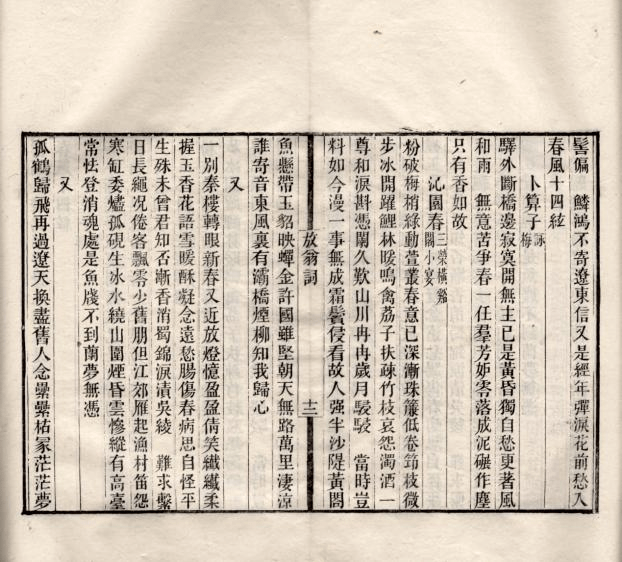 髻偏　鱗鴻不寄遼東信又是經年彈淚花前愁入
春風十四絃
卜算子 詠梅
驛外斷橋邊寂寞開無主已是黃昏獨自愁更著風
和雨　無意苦爭春一任羣芳妒零落成泥碾作塵
只有香如故
沁園春 三榮橫谿閣小宴
粉破梅梢綠動萱叢春意已深漸珠簾低卷筇枝微
步冰開躍鯉林暖鳴禽荔子扶疎竹枝哀怨濁酒一
尊和淚斟憑闌久歎山川冉冉歲月駸駸　當時豈
料如今漫一事無成霜鬢侵看故人强半沙隄黃閣
放翁詞　十二
魚懸帶玉貂映蟬金許國雖堅朝天無路萬里淒涼
誰寄音東風裏有灞橋煙柳知我歸心
又
一別秦樓轉眼新春又近放燈憶盈盈倩笑纖纖柔
握玉香花語雪暖酥凝念遠愁腸傷春病思自怪平
生殊未曾君知否漸香消蜀錦淚漬吳綾　難求繫
日長繩況倦客飄零少舊朋但江郊雁起漁村笛怨
寒缸委燼孤硯生冰水繞山圍煙昏雲慘縱有高臺
常怯登消魂處是魚牋不到蘭夢無憑
又
孤鶴歸飛再過遼天換盡舊人念纍纍枯冢茫茫夢